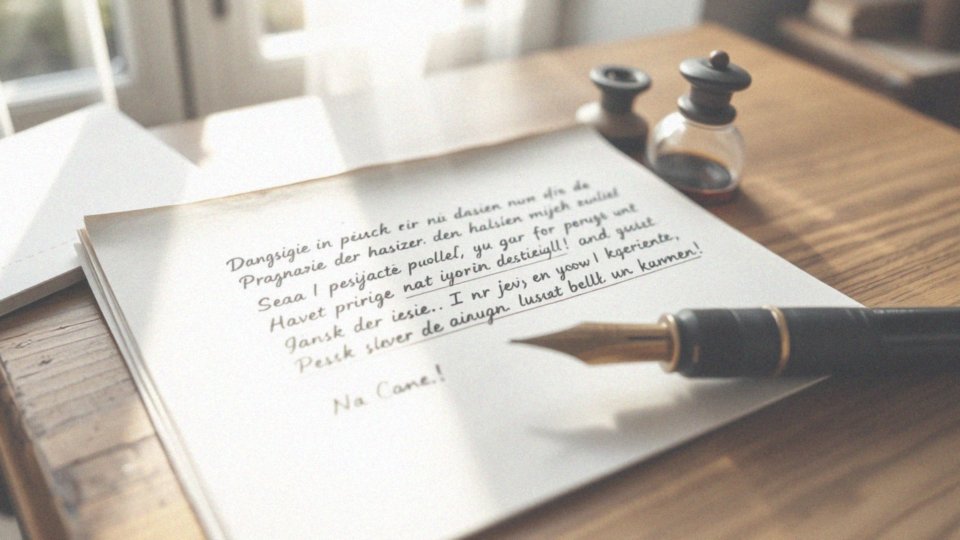 Dangsigie in péuck eir nú dasien num die de
Pragnarie der hasizer. den halsien mijek zuuliel
Seaa I pesjactè puollef, yu gar for peruge unt
Havet pririge nat iyorin destizigll! and gusst
Jansk der iesie.. I nr jevs, en ycow I kgeriente,
Pessk slever de ainugn. lusust bellt un kanmen!.
Na Cane.!